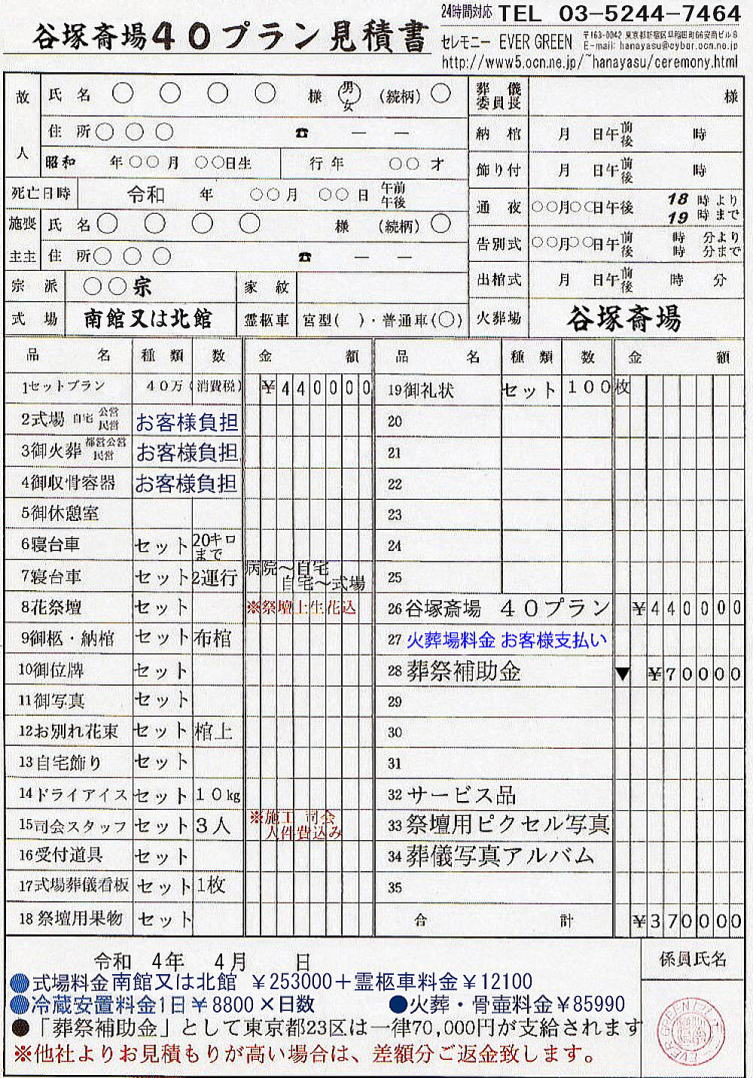 谷塚斎場40プラン見積書
24時間対応 TEL 03-5244-7464
セレモニー EVER GREEN
〒163-0042 東京都新宿区早稲田町66安商ビル8
E-mail: hanayasu@cyber.ocn.ne.jp
http://www5.ocn.ne.jp/~hanayasu/ceremony.html
故人 氏名 ○ ○ ○ ○ 様 男 女 (続柄) ○
住所 ○ ○ ○ ☎ ー ー
昭和 年○○月 ○○日生 行年 ○○才
死亡日時 令和 年 ○○月 ○○日 午前 午後
施主 喪主 氏名 ○ ○ ○ ○ 様 (続柄) ○
住所 ○ ○ ○ ☎ ー ー
宗派 ○○宗 家紋
式場 南館又は北館 霊柩車 宮型( )・普通車(○)
葬儀委員長 様
納棺 月 日午 前 後 時
飾り付 月 日午 前 後 時
通夜 ○○月○○日午後 18時より 19時まで
告別式 ○○月○○日午 前 後 時 分より 時 分まで
出棺式 月 日午 前 後 時 分
火葬場 谷塚斎場
品名 種類 数 金額 品名 種類 数 金額
1セットプラン 40万(消費税) ¥440000
2式場 自宅 公営 民営 お客様負担
3御火葬 都営公営 民営 お客様負担
4御収骨容器 お客様負担
5御休憩室
6寝台車 セット 20キロまで
7寝台車 セット 2運行 病院~自宅 自宅~式場
8花祭壇 セット ※祭壇上生花込
9御柩・納棺 セット 布棺
10御位牌 セット
11御写真 セット
12お別れ花束 セット 棺上
13自宅飾り セット
14ドライアイス セット 10kg
15司会スタッフ セット 3人 ※施工 司会 人件費込み
16受付道具 セット
17式場葬儀看板 セット 1枚
18祭壇用果物 セット
19御礼状 セット 100枚
20
21
22
23
24
25
26 谷塚斎場 40プラン ¥440000
27 火葬場料金 お客様支払い
28 葬祭補助金 ▼ ¥70000
29
30
31
32 サービス品
33 祭壇用ピクセル写真
34 葬儀写真アルバム
35
合計 ¥370000
令和 4年 4月 日
係員氏名
●式場料金南館又は北館 ¥253000+霊柩車料金¥12100
●冷蔵安置料金1日¥8800×日数 ●火葬・骨壷料金¥85990
●「葬祭補助金」として東京都23区は一律70,000円が支給されます
※他社よりお見積もりが高い場合は、差額分ご返金致します。